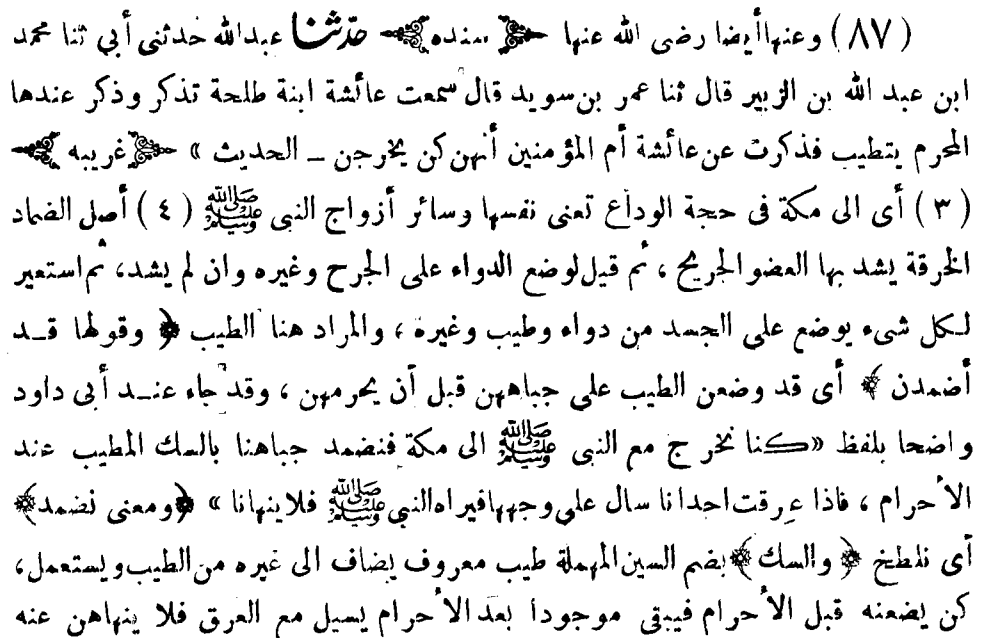 (٨٧) وعنها أيضا رضى الله عنها ﴿ سنده ﴾ حدثنا عبد الله حدثنى أبي ثنا محمد
ابن عبد الله بن الزبير قال ثنا عمر بن سويد قال سمعت عائشة ابنة طلحة تذكر وذكر عندها
المحرم يتطيب فذكرت عن عائشة أم المؤمنين أنهن كن يخرجن ــ الحديث » ﴿ غريبه ﴾
(٣) أى الى مكة فى حجة الوداع تعنى نفسها وسائر أزواج النبى ﷺ (٤) أصل الضماد
الخرقة يشد بها العضو الجريح ، ثم قيل لوضع الدواء على الجرح وغيره وان لم يشد، ثم استعير
لكل شىء يوضع على الجسد من دواء وطيب وغيره ، والمراد هنا الطيب ﴿ وقولها قد
أضمدن ﴾ أى قد وضعن الطيب على جباههن قبل أن يحرمهن ، وقد جاء عند أبى داود
واضحا بلفظ «كنا نخرج مع النبى ﷺ الى مكة فنضمد جباهنا بالسك المطيب عند
الأحرام ، فاذا عرقت احدانا سال على وجهها فيراه النبى ﷺ فلا ينهانا » ﴿ ومعنى نضمد ﴾
أى نلطخ ﴿ والسك ﴾ بضم السين المهملة طيب معروف يضاف الى غيره من الطيب ويستعمل،
كن يضعنه قبل الأحرام فيبقى موجودا بعد الأحرام يسيل مع العرق فلا ينهاهن عنه